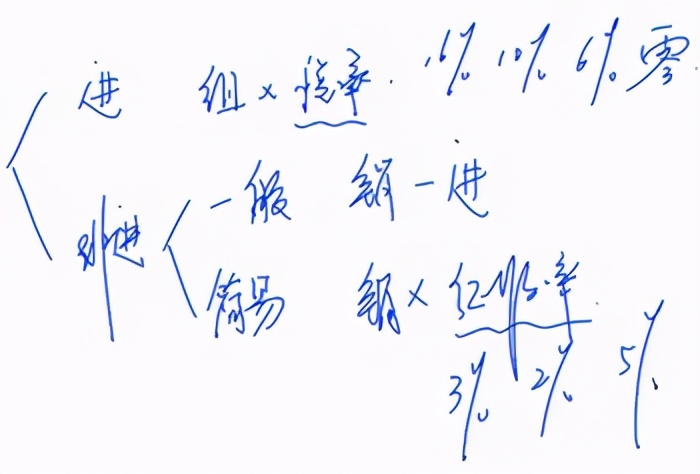 进 组×税率. 16% 10% 6% 零
一般 销-进
非进
简易 销×征收率
3% 2% 5%